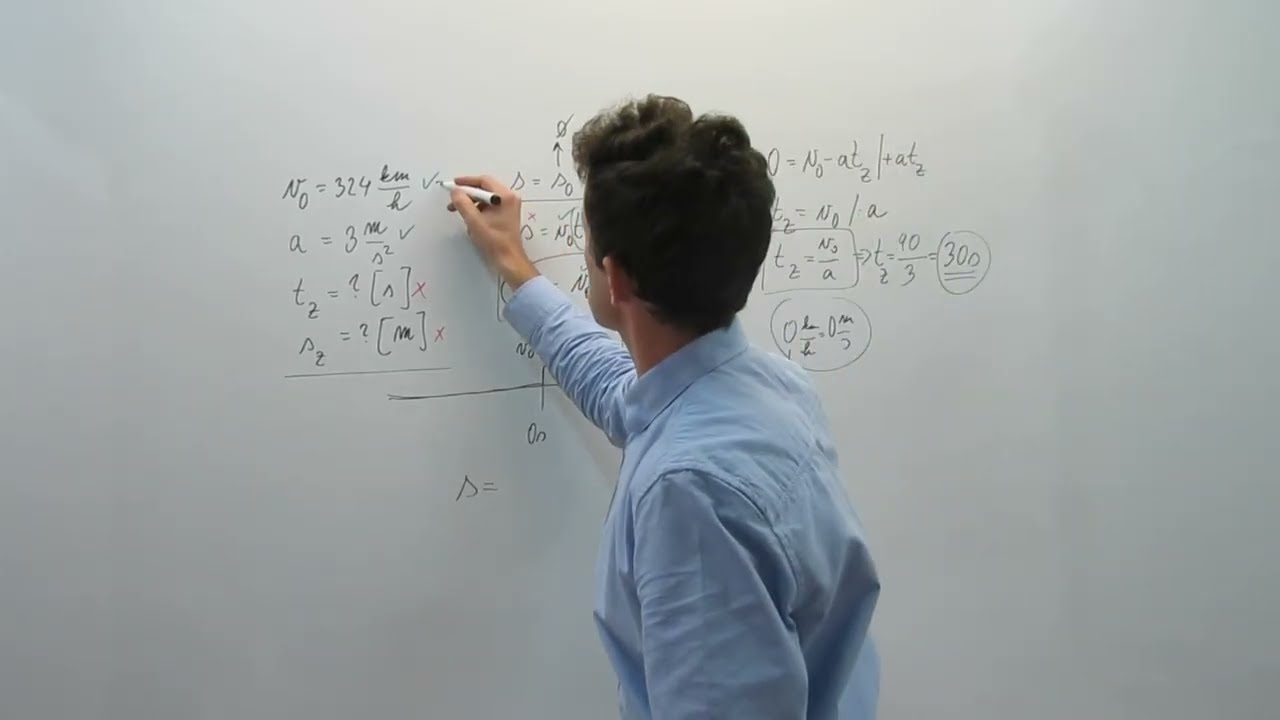 v₀ = 324 km/h ✓
a = 3 m/s² ✓
t_z = ? [s] x
s_z = ? [m] x
0
↑
s = s₀
x
s = v₀t
v₀
0s
s =
0 = v₀ - at_z | + at_z
t_z = v₀ / : a
t_z = v₀/a => t_z = 90/3 = 30s
0 km/h = 0 m/s